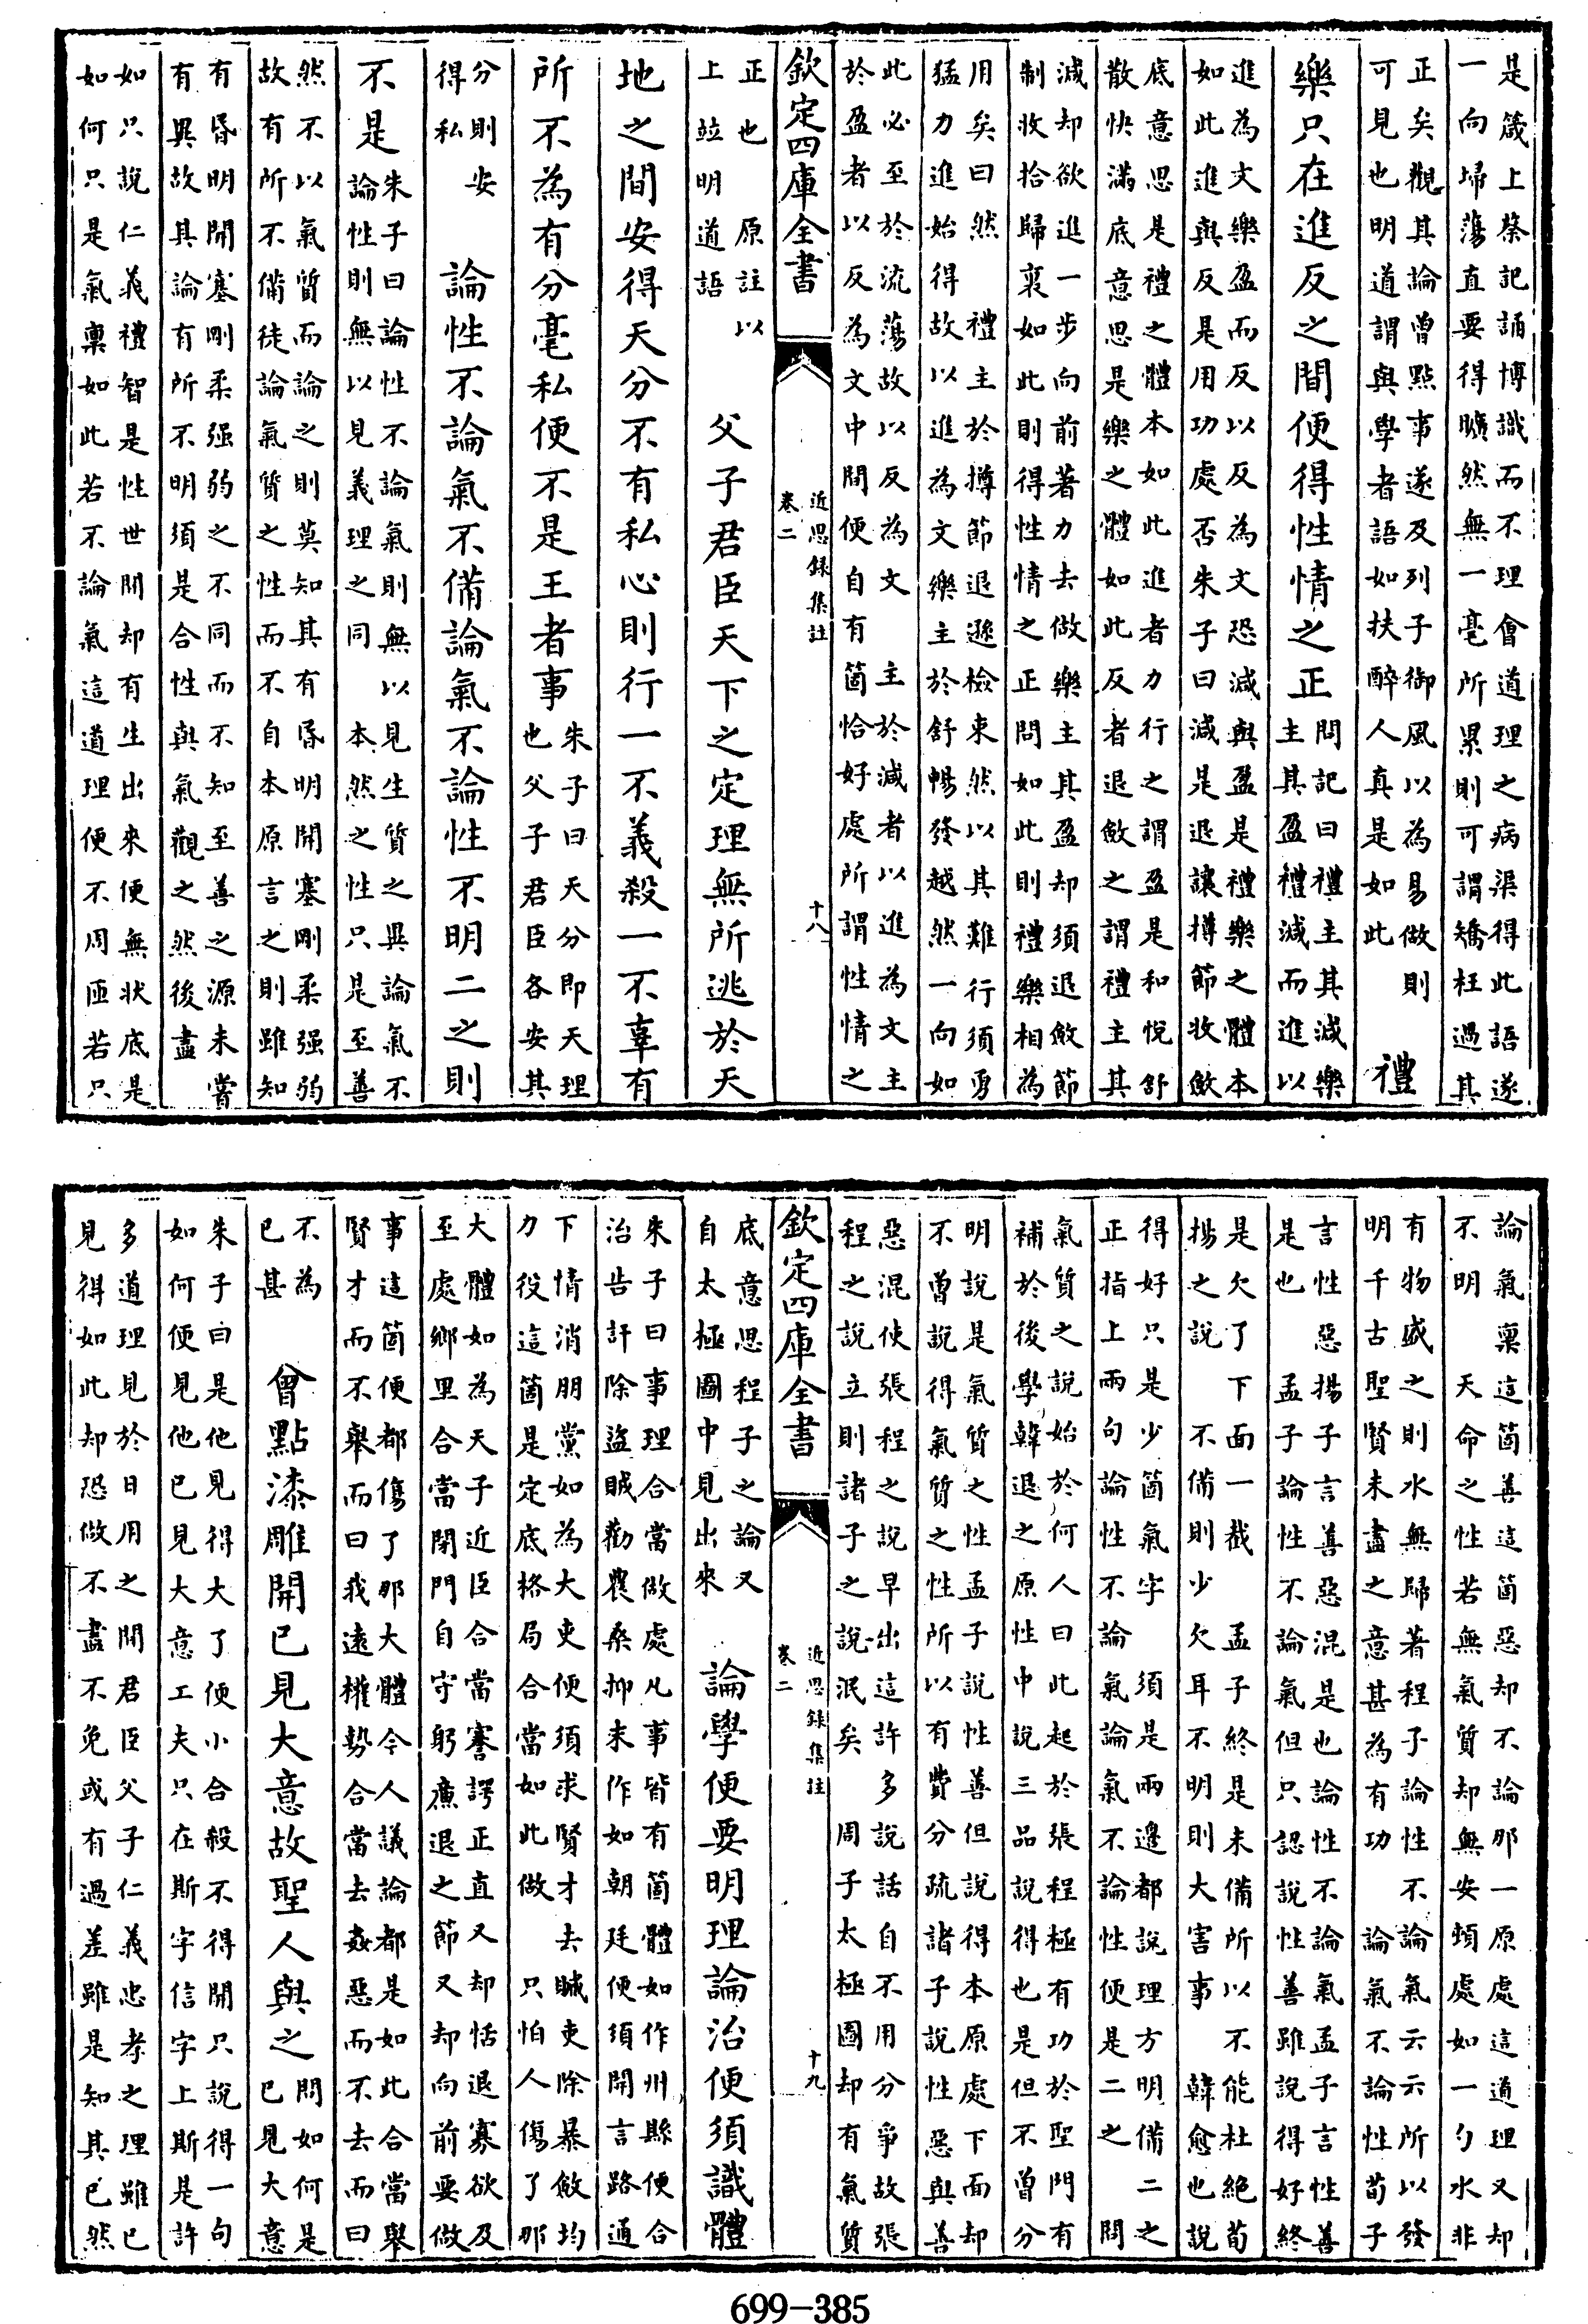 是箴上蔡記誦博識而不理會道理之病渠得此語遂
一向掃蕩直要得曠然無一毫所累則可謂矯枉過其
正矣觀其論曾點事遂及列子御風以為易做則
可見也明道謂與學者語如扶醉人真是如此
禮
樂只在進反之間便得性情之正
問記曰禮主其減樂
主其盈禮減而進以
進為文樂盈而反以反為文恐減與盈是禮樂之體本
如此進與反是用功處否朱子曰減是退讓撙節收斂
底意思是禮之體本如此進者力行之謂盈是和悅舒
散快滿底意思是樂之體如此反者退斂之謂禮主其
減却欲進一步向前著力去做樂主其盈却須退斂節
制收拾歸裏如此則得性情之正問如此則禮樂相為
用矣曰然 禮主於撙節退遜檢束然以其難行須勇
猛力進始得故以進為文樂主於舒暢發越然一向如
此必至於流蕩故以反為文 主於減者以進為文主
於盈者以反為文中間便自有箇恰好處所謂性情之
欽定四庫全書
近思錄集註
卷二
十八
正也 原註以
上竝明道語
父子君臣天下之定理無所逃於天
地之間安得天分不有私心則行一不義殺一不辜有
所不為有分毫私便不是王者事
朱子曰天分即天理
也父子君臣各安其
分則安
得私
論性不論氣不備論氣不論性不明二之則
不是
朱子曰論性不論氣則無以見生質之異論氣不
論性則無以見義理之同 本然之性只是至善
然不以氣質而論之則莫知其有昏明開塞剛柔强弱
故有所不備徒論氣質之性而不自本原言之則雖知
有昏明開塞剛柔强弱之不同而不知至善之源未嘗
有異故其論有所不明須是合性與氣觀之然後盡
如只說仁義禮智是性世間却有生出來便無狀底是
如何只是氣稟如此若不論氣這道理便不周匝若只
論氣稟這箇善這箇惡却不論那一原處這道理又却
不明 天命之性若無氣質却無安頓處如一勺水非
有物盛之則水無歸著程子論性不論氣云云所以發
明千古聖賢未盡之意甚為有功 論氣不論性荀子
言性惡揚子言善惡混是也論性不論氣孟子言性善
是也 孟子論性不論氣但只認說性善雖說得好終
是欠了下面一截 孟子終是未備所以不能杜絕荀
揚之說 不備則少欠耳不明則大害事 韓愈也說
得好只是少箇氣字 須是兩邊都說理方明備二之
正指上兩句論性不論氣論氣不論性便是二之 問
氣質之說始於何人曰此起於張程極有功於聖門有
補於後學韓退之原性中說三品說得也是但不曾分
明說是氣質之性孟子說性善但說得本原處下面却
不曾說得氣質之性所以有費分疏諸子說性惡與善
惡混使張程之說早出這許多說話自不用分爭故張
程之說立則諸子之說泯矣 周子太極圖却有氣質
欽定四庫全書
近思錄集註
卷二
十九
底意思程子之論又
自太極圖中見出來
論學便要明理論治便須識體
朱子曰事理合當做處凡事皆有箇體如作州縣便合
治告訐除盜賊勸農桑抑末作如朝廷便須開言路通
下情消朋黨如為大吏便須求賢才去贓吏除暴斂均
力役這箇是定底格局合當如此做 只怕人傷了那
大體如為天子近臣合當謇諤正直又却恬退寡欲及
至處鄉里合當閉門自守躬廉退之節又却向前要做
事這箇便都傷了那大體今人議論都是如此合當舉
賢才而不舉而曰我遠權勢合當去姦惡而不去而曰
不為
已甚
曾點漆雕開已見大意故聖人與之
問如何是
已見大意
朱子曰是他見得大了便小合殺不得開只說得一句
如何便見他已見大意工夫只在斯字信字上斯是許
多道理見於日用之間君臣父子仁義忠孝之理雖已
見得如此却恐做不盡不免或有過差雖是知其已然
699-385